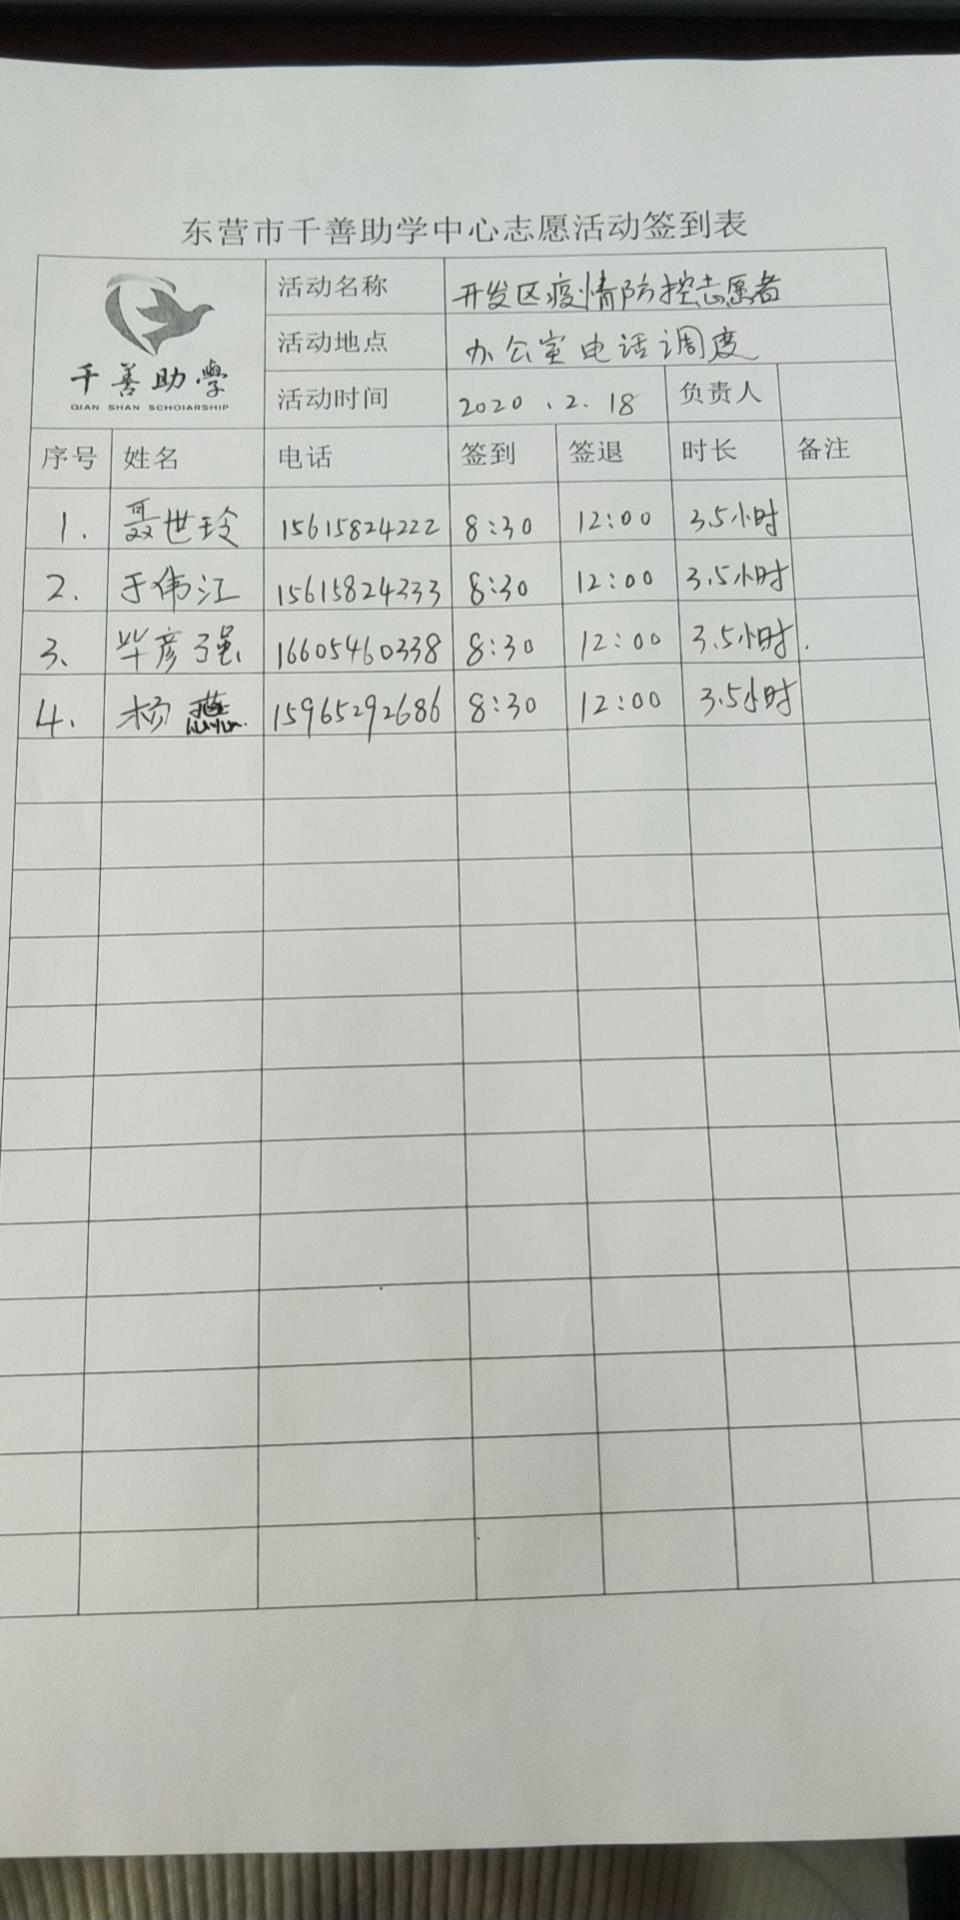 东营市千善助学中心志愿活动签到表
千善助學
QIAN SHAN SCHOIARSHIP
活动名称 开发区疫情防控志愿者
活动地点 办公室电话调度
活动时间 2020.2.18 负责人
序号 姓名 电话 签到 签退 时长 备注
1. 聂世玲 15615824222 8:30 12:00 3.5小时
2. 于伟江 15615824333 8:30 12:00 3.5小时
3. 毕彦强 16605460338 8:30 12:00 3.5小时.
4. 杨燕 15965292686 8:30 12:00 3.5小时